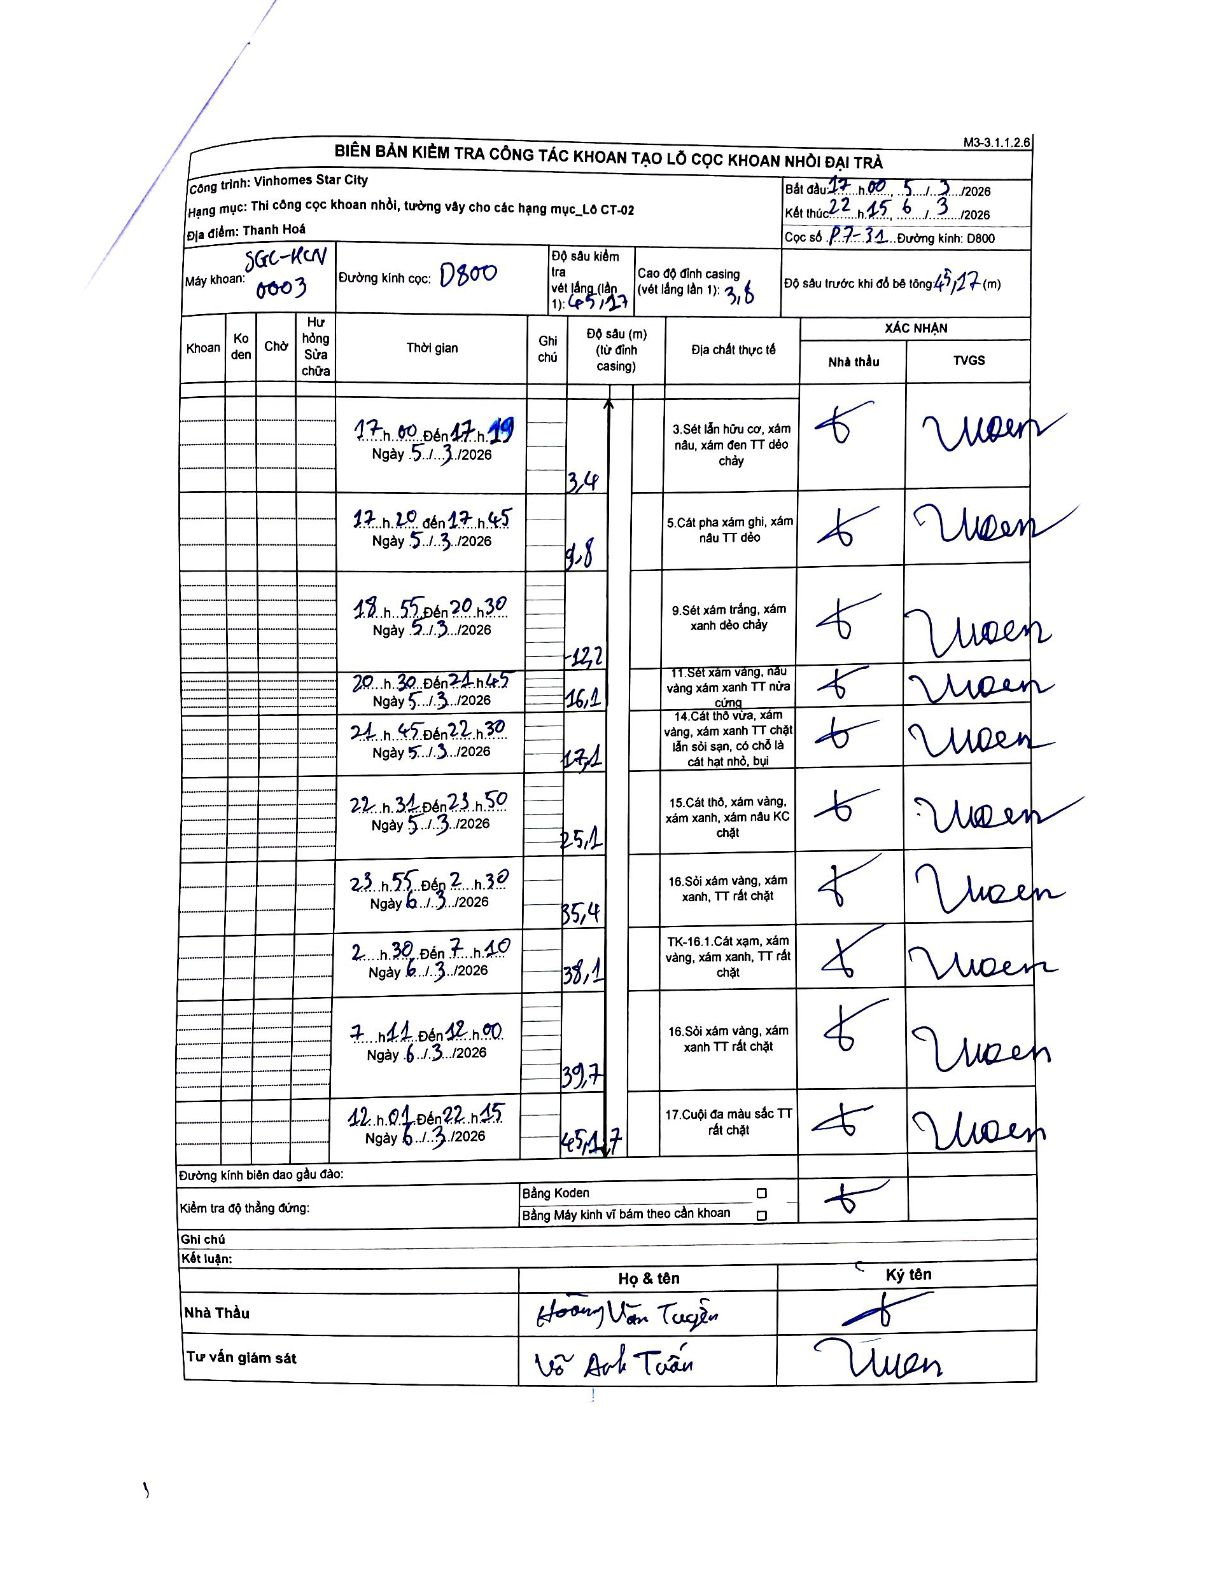 M3-3.1.1.2.6
BIÊN BẢN KIỂM TRA CÔNG TÁC KHOAN TẠO LỖ CỌC KHOAN NHỒI ĐẠI TRÀ
Công trình: Vinhomes Star City
Hạng mục: Thi công cọc khoan nhồi, tường vây cho các hạng mục_Lô CT-02
Địa điểm: Thanh Hoá
Bắt đầu: 17 h 00, 5 / 3 /2026
Kết thúc 22 h 15 6 / 3 /2026
Cọc số P7-31 Đường kính: D800
Máy khoan: SGC-KCN 0003
Đường kính cọc: D800
Độ sâu kiểm tra
vét lắng (lần 1): 45,17
Cao độ đỉnh casing
(vét lắng lần 1): 3,8
Độ sâu trước khi đổ bê tông 45,17 (m)
Khoan
Ko den
Chờ
Hư hỏng Sửa chữa
Thời gian
Ghi chú
Độ sâu (m) (từ đỉnh casing)
Địa chất thực tế
XÁC NHẬN
Nhà thầu
TVGS
17 h 00 Đến 17 h 19
Ngày 5 / 3 /2026
3,4
3.Sét lẫn hữu cơ, xám
nâu, xám đen TT dẻo
chảy
17 h 20 đến 17 h 45
Ngày 5 / 3 /2026
9,8
5.Cát pha xám ghi, xám
nâu TT dẻo
18 h 55 Đến 20 h 30
Ngày 5 / 3 /2026
12,2
9.Sét xám trắng, xám
xanh dẻo chảy
20 h 30 Đến 21 h 45
Ngày 5 / 3 /2026
16,1
11.Sét xám vàng, nâu
vàng xám xanh TT nửa
cứng
21 h 45 Đến 22 h 30
Ngày 5 / 3 /2026
17,1
14.Cát thô vừa, xám
vàng, xám xanh TT chặt
lẫn sỏi sạn, có chỗ là
cát hạt nhỏ, bụi
22 h 31 Đến 23 h 50
Ngày 5 / 3 /2026
25,1
15.Cát thô, xám vàng,
xám xanh, xám nâu KC
chặt
23 h 55 Đến 2 h 30
Ngày 6 / 3 /2026
35,4
16.Sỏi xám vàng, xám
xanh, TT rất chặt
2 h 30 Đến 7 h 10
Ngày 6 / 3 /2026
38,1
TK-16.1.Cát xạm, xám
vàng, xám xanh, TT rất
chặt
7 h 11 Đến 12 h 00
Ngày 6 / 3 /2026
39,7
16.Sỏi xám vàng, xám
xanh TT rất chặt
12 h 01 Đến 22 h 15
Ngày 6 / 3 /2026
45,17
17.Cuội đa màu sắc TT
rất chặt
Đường kính biên dao gầu đào:
Kiểm tra độ thẳng đứng:
Bằng Koden
Bằng Máy kinh vĩ bám theo cần khoan
Ghi chú
Kết luận:
Họ & tên
Ký tên
Nhà Thầu
Hoàng Văn Tuyền
Tư vấn giám sát
Võ Anh Tuấn